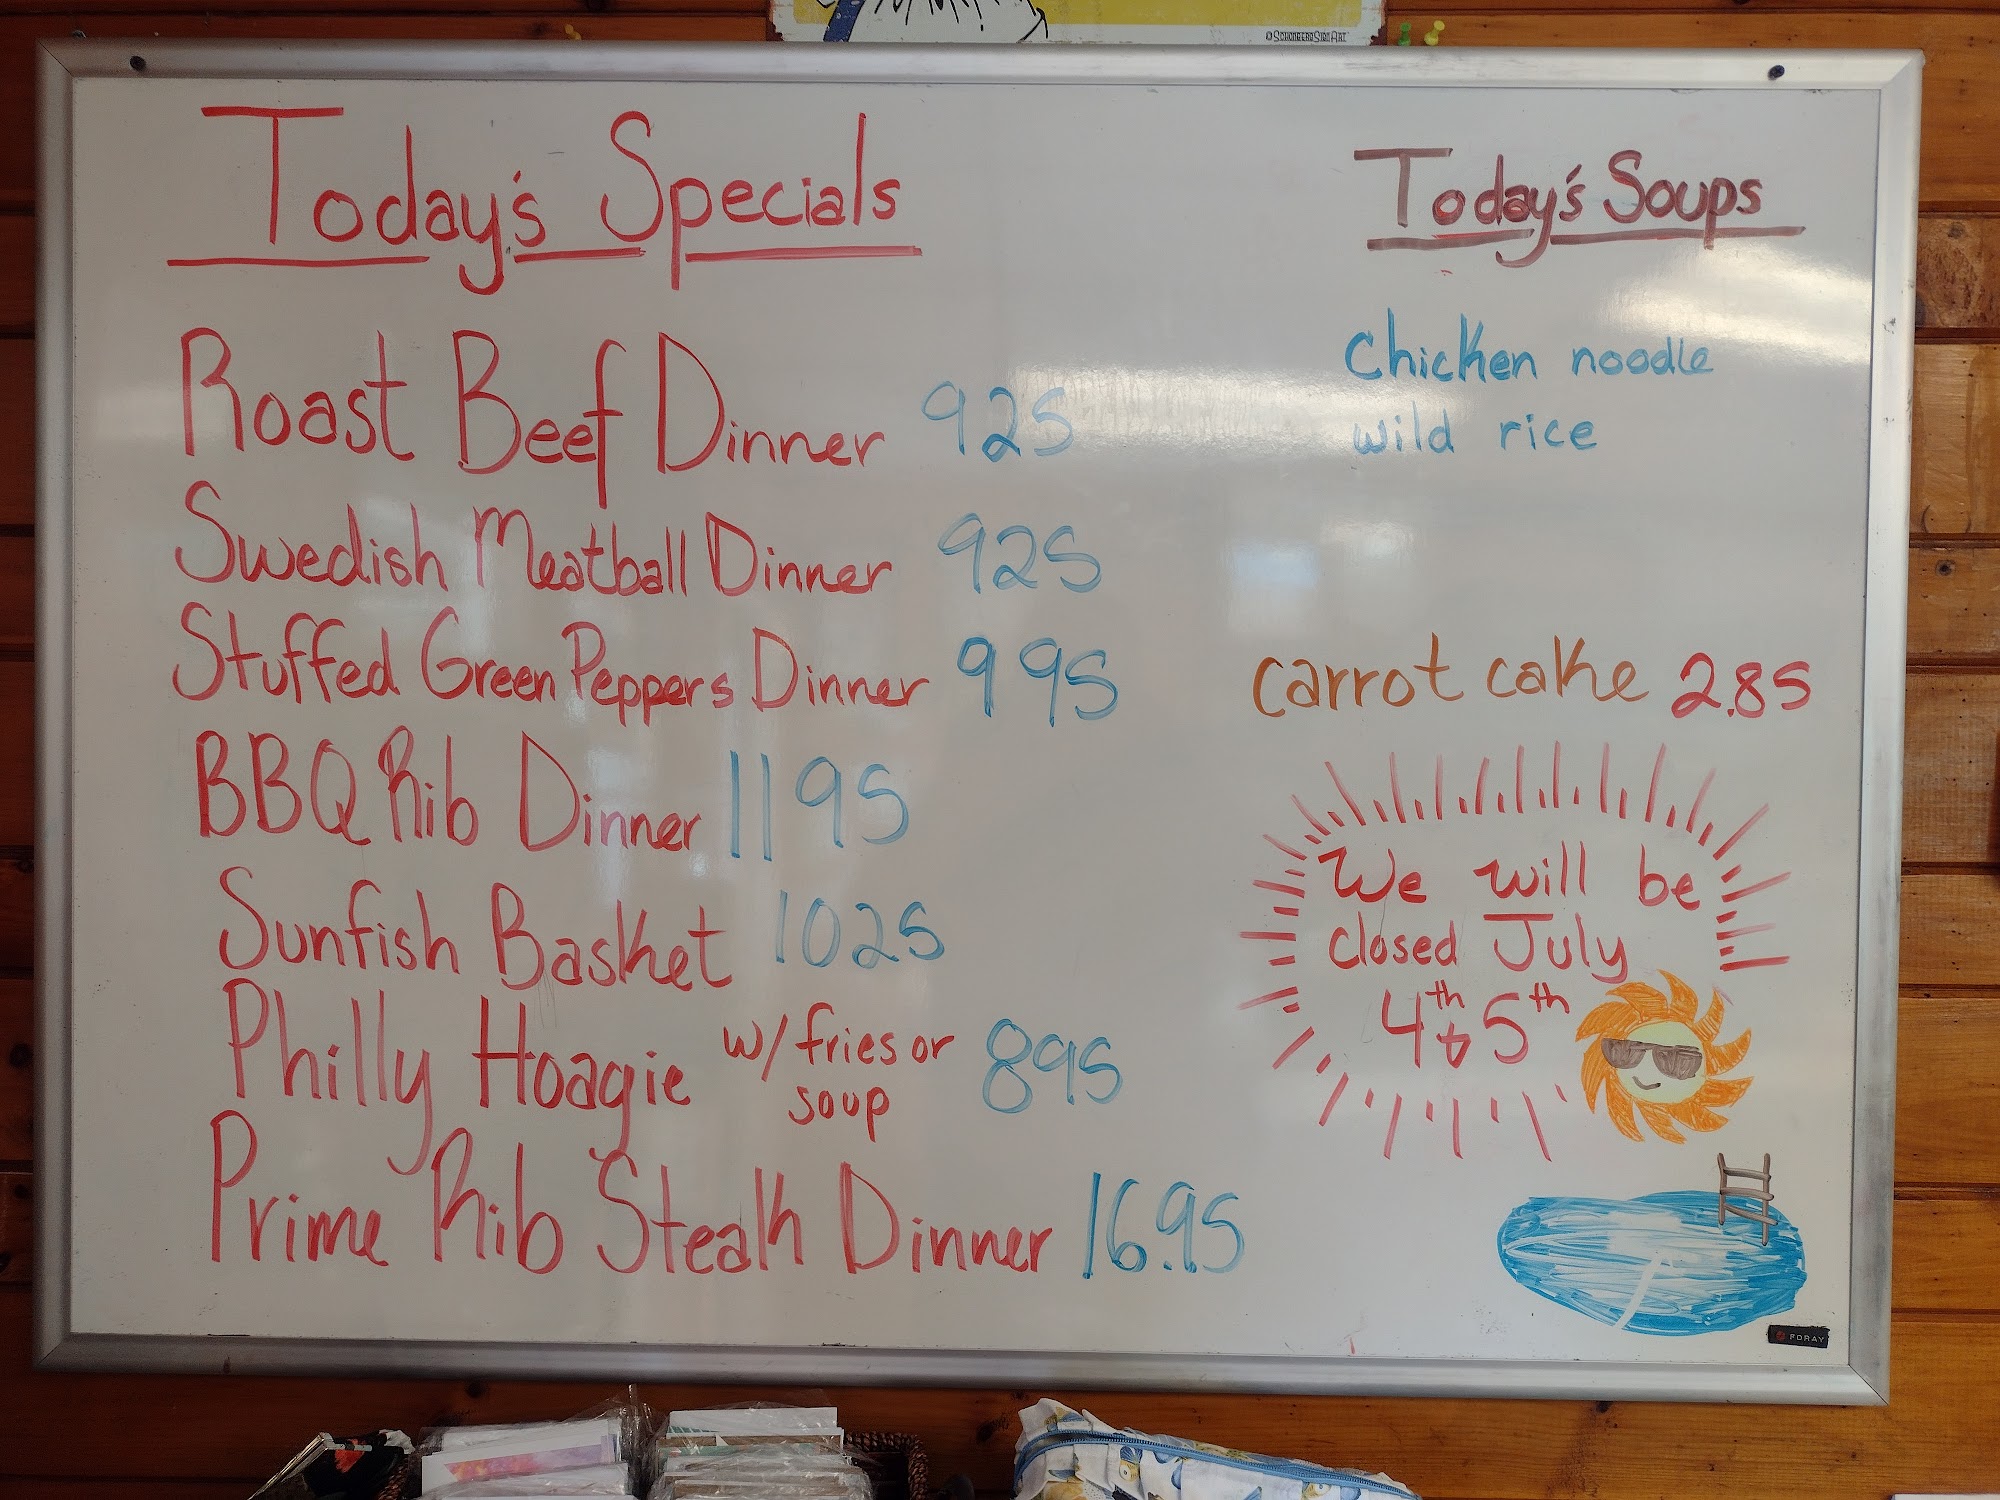 ©SCHONBERGSIGNART
Today's Specials
Roast Beef Dinner 925
Swedish Meatball Dinner 925
Stuffed Green Peppers Dinner 995
BBQ Rib Dinner 1195
Sunfish Basket 1025
Philly Hoagie w/ fries or 895
soup
Prime Rib Steak Dinner 16.95
Today's Soups
Chicken noodle
wild rice
carrot cake 2.85
We will be
closed July
4th & 5th
FORAY